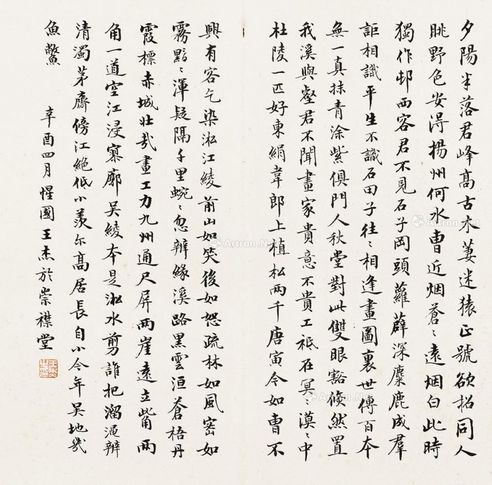 夕陽半落君峰高古木蔞迷猿正號欲招同人
眺野色安得楊州何水曹近烟蒼〻遠烟白此時
獨作邨西客君不見石子岡頭蘿薜深麋鹿成羣
詎相識平生不識石田子往〻相逢畫圖裏世傳百本
無一真抹青涂紫俱門人秋堂對此雙眼豁倏然置
我溪與壑君不聞畫家貴意不貴工祇在冥〻漠〻中
杜陵一匹好東絹韋郎上植松兩千唐寅今如曹不
興有客乞染淞江綾前山如笑後如怒疏林如風密如
霧黟〻渾疑隔千里蜿〻忽辨緣溪路黑雲洹蒼梧丹
霞標赤城壯哉畫工力九州通尺屏兩崖遠立觜兩
角一道空江浸寥廓吳綾本是淞水剪誰把溜澠辨
清濁茅齋傍江絕低小羨尔高居長自小今年吳地幾
魚鱉
辛酉四月惺園王杰於崇襟堂